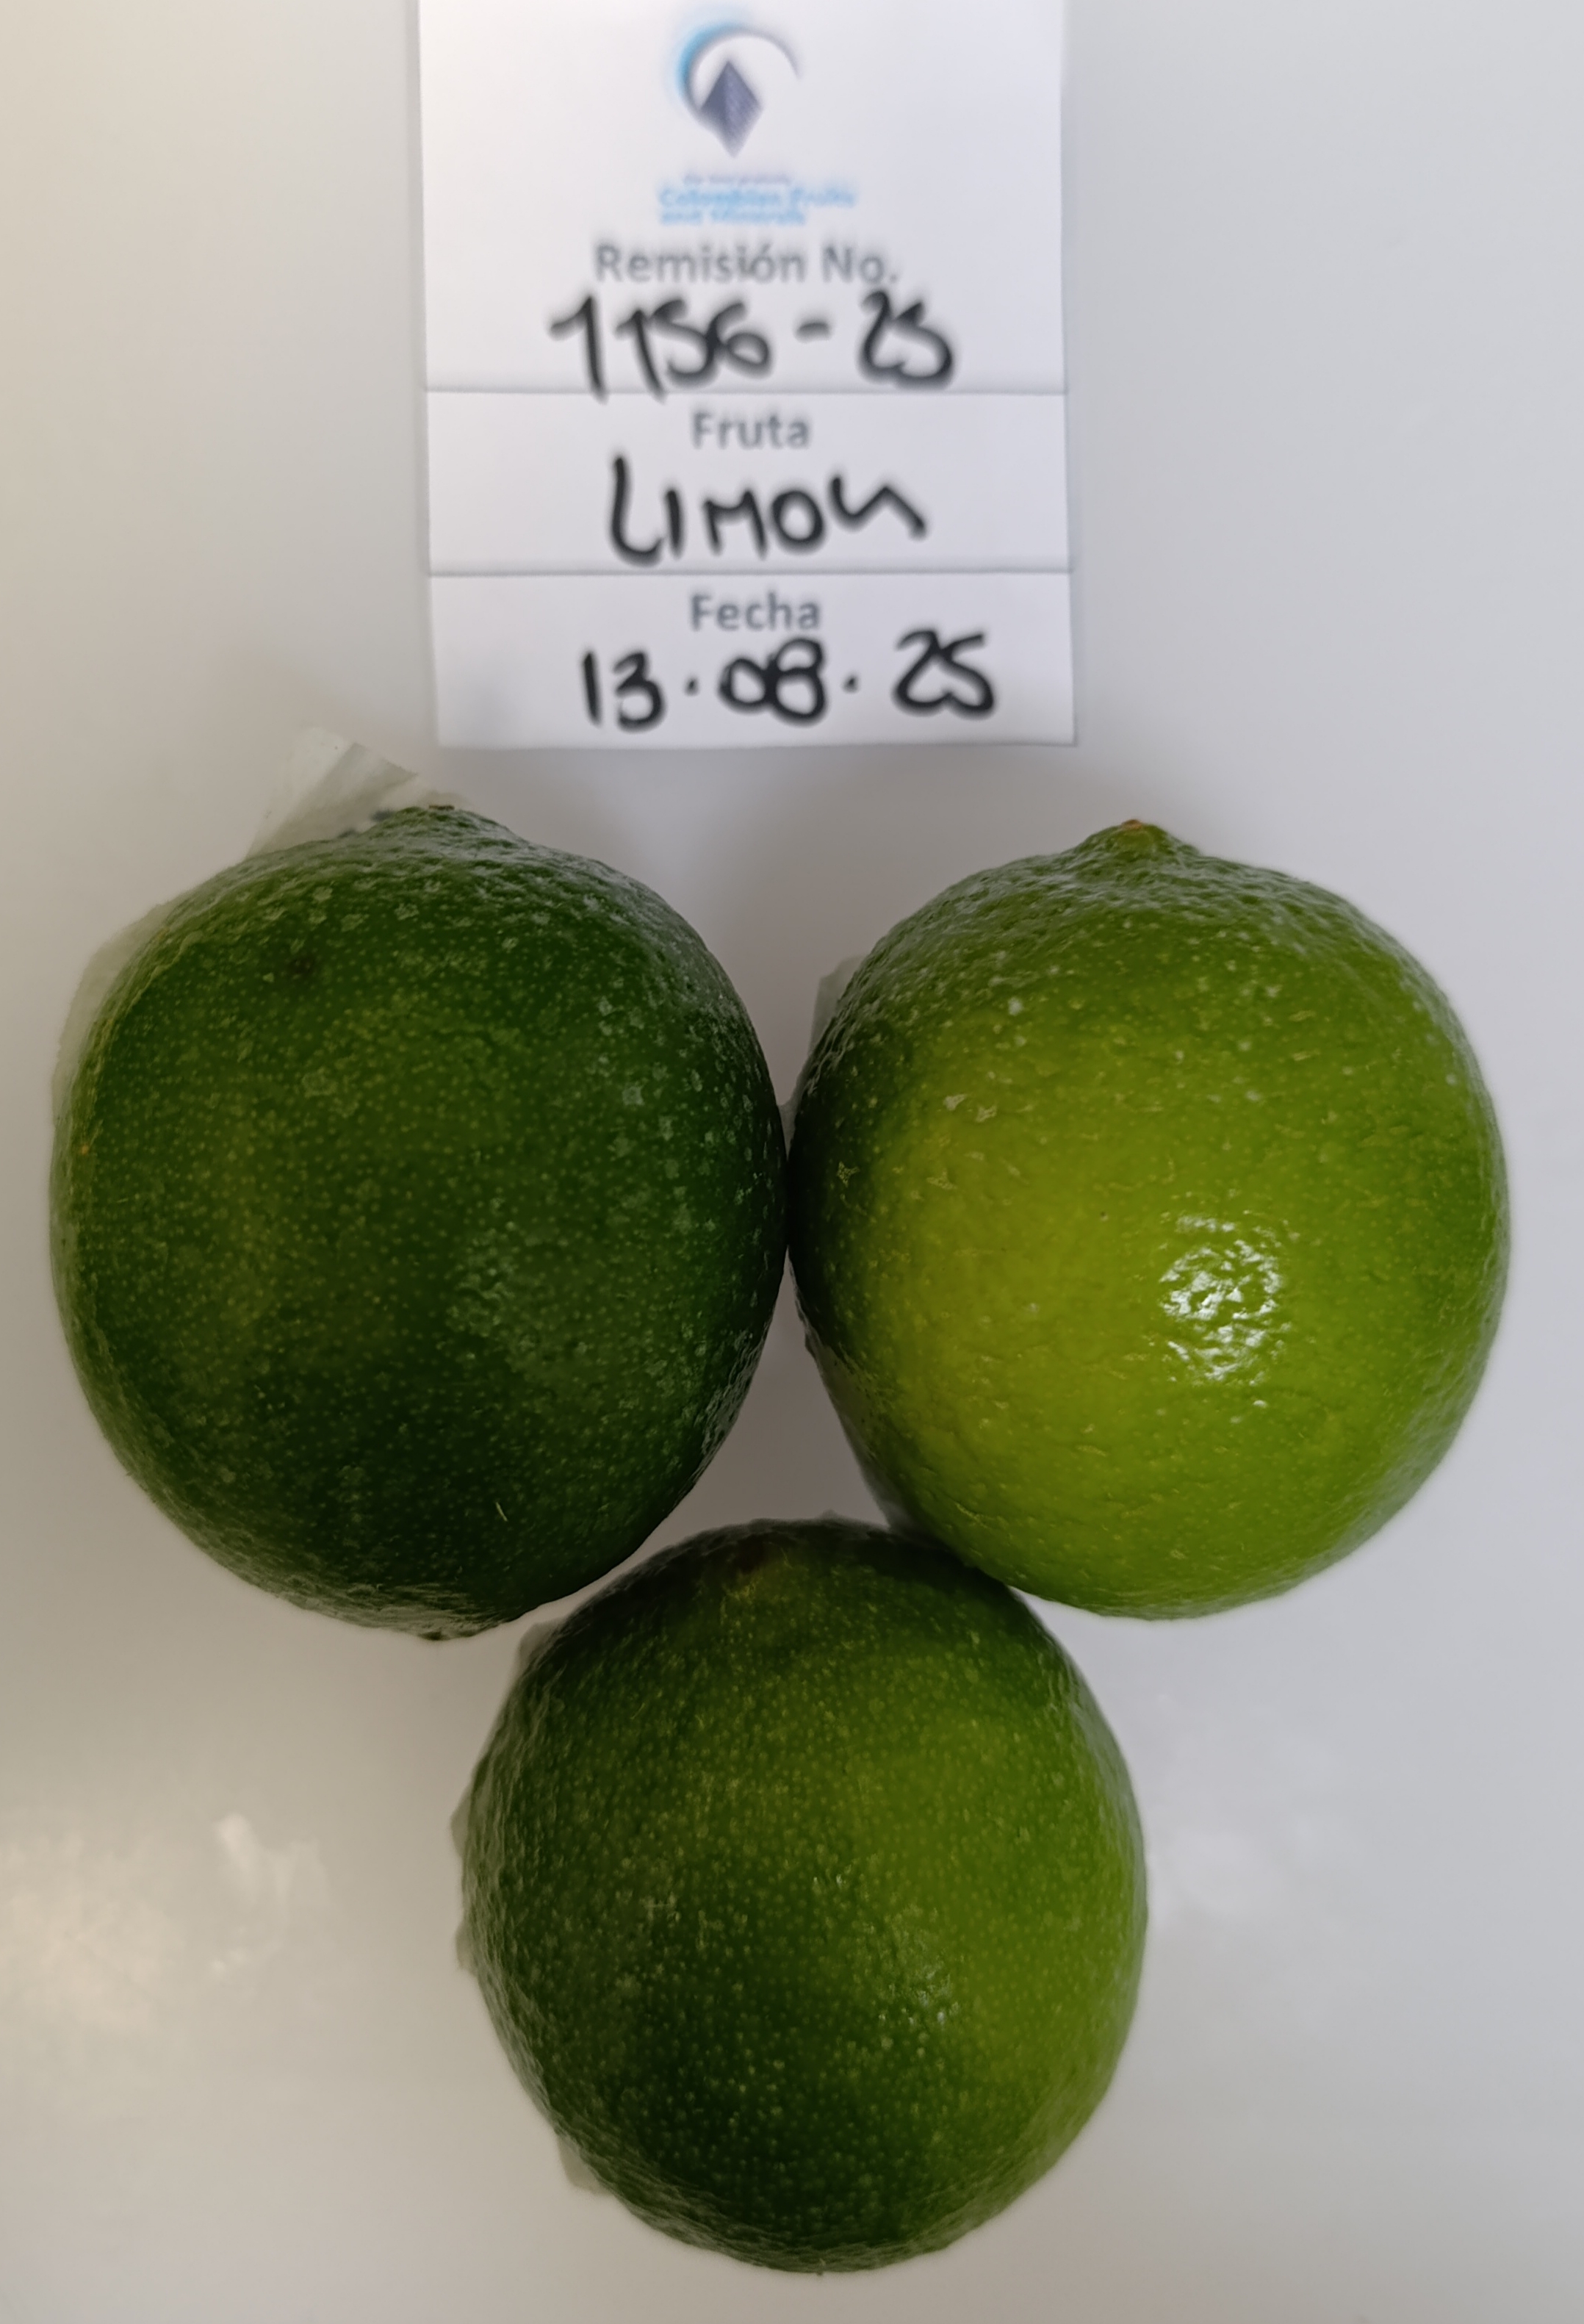 Colombian Fruits
and Minerals
Remisión No.
1156-25
Fruta
LIMON
Fecha
13.08.25